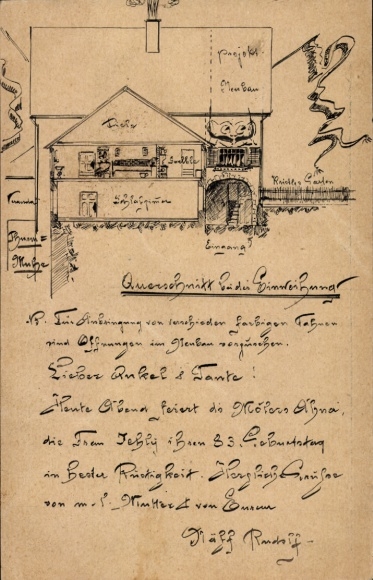 projekt.
Neubau
Diele
Schlafzimmer
Garten
Eingang
Veranda
Querschnitt bei der Einweihung
NB. Für Anbringung von verschieden farbigen Fahnen
sind Öffnungen im Neubau vorgesehen.
Lieber Onkel & Tante !
Heute Abend feiert die Ahna,
die Frau ihren 83. Geburtstag
in bester Rüstigkeit. Herzliche Grüsse
von m. l. Mutter & von Eurem
Rudolf